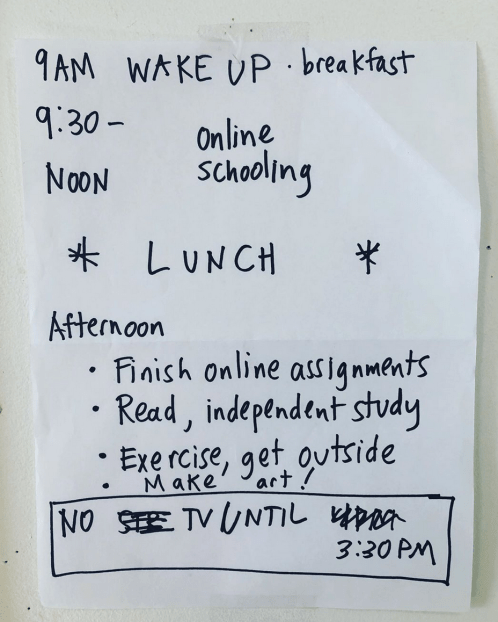 9AM WAKE UP · breakfast
9:30 – Online
NOON schooling
* LUNCH *
Afternoon
• Finish online assignments
• Read, independent study
• Exercise, get outside
• Make art!
NO TV UNTIL
3:30 PM